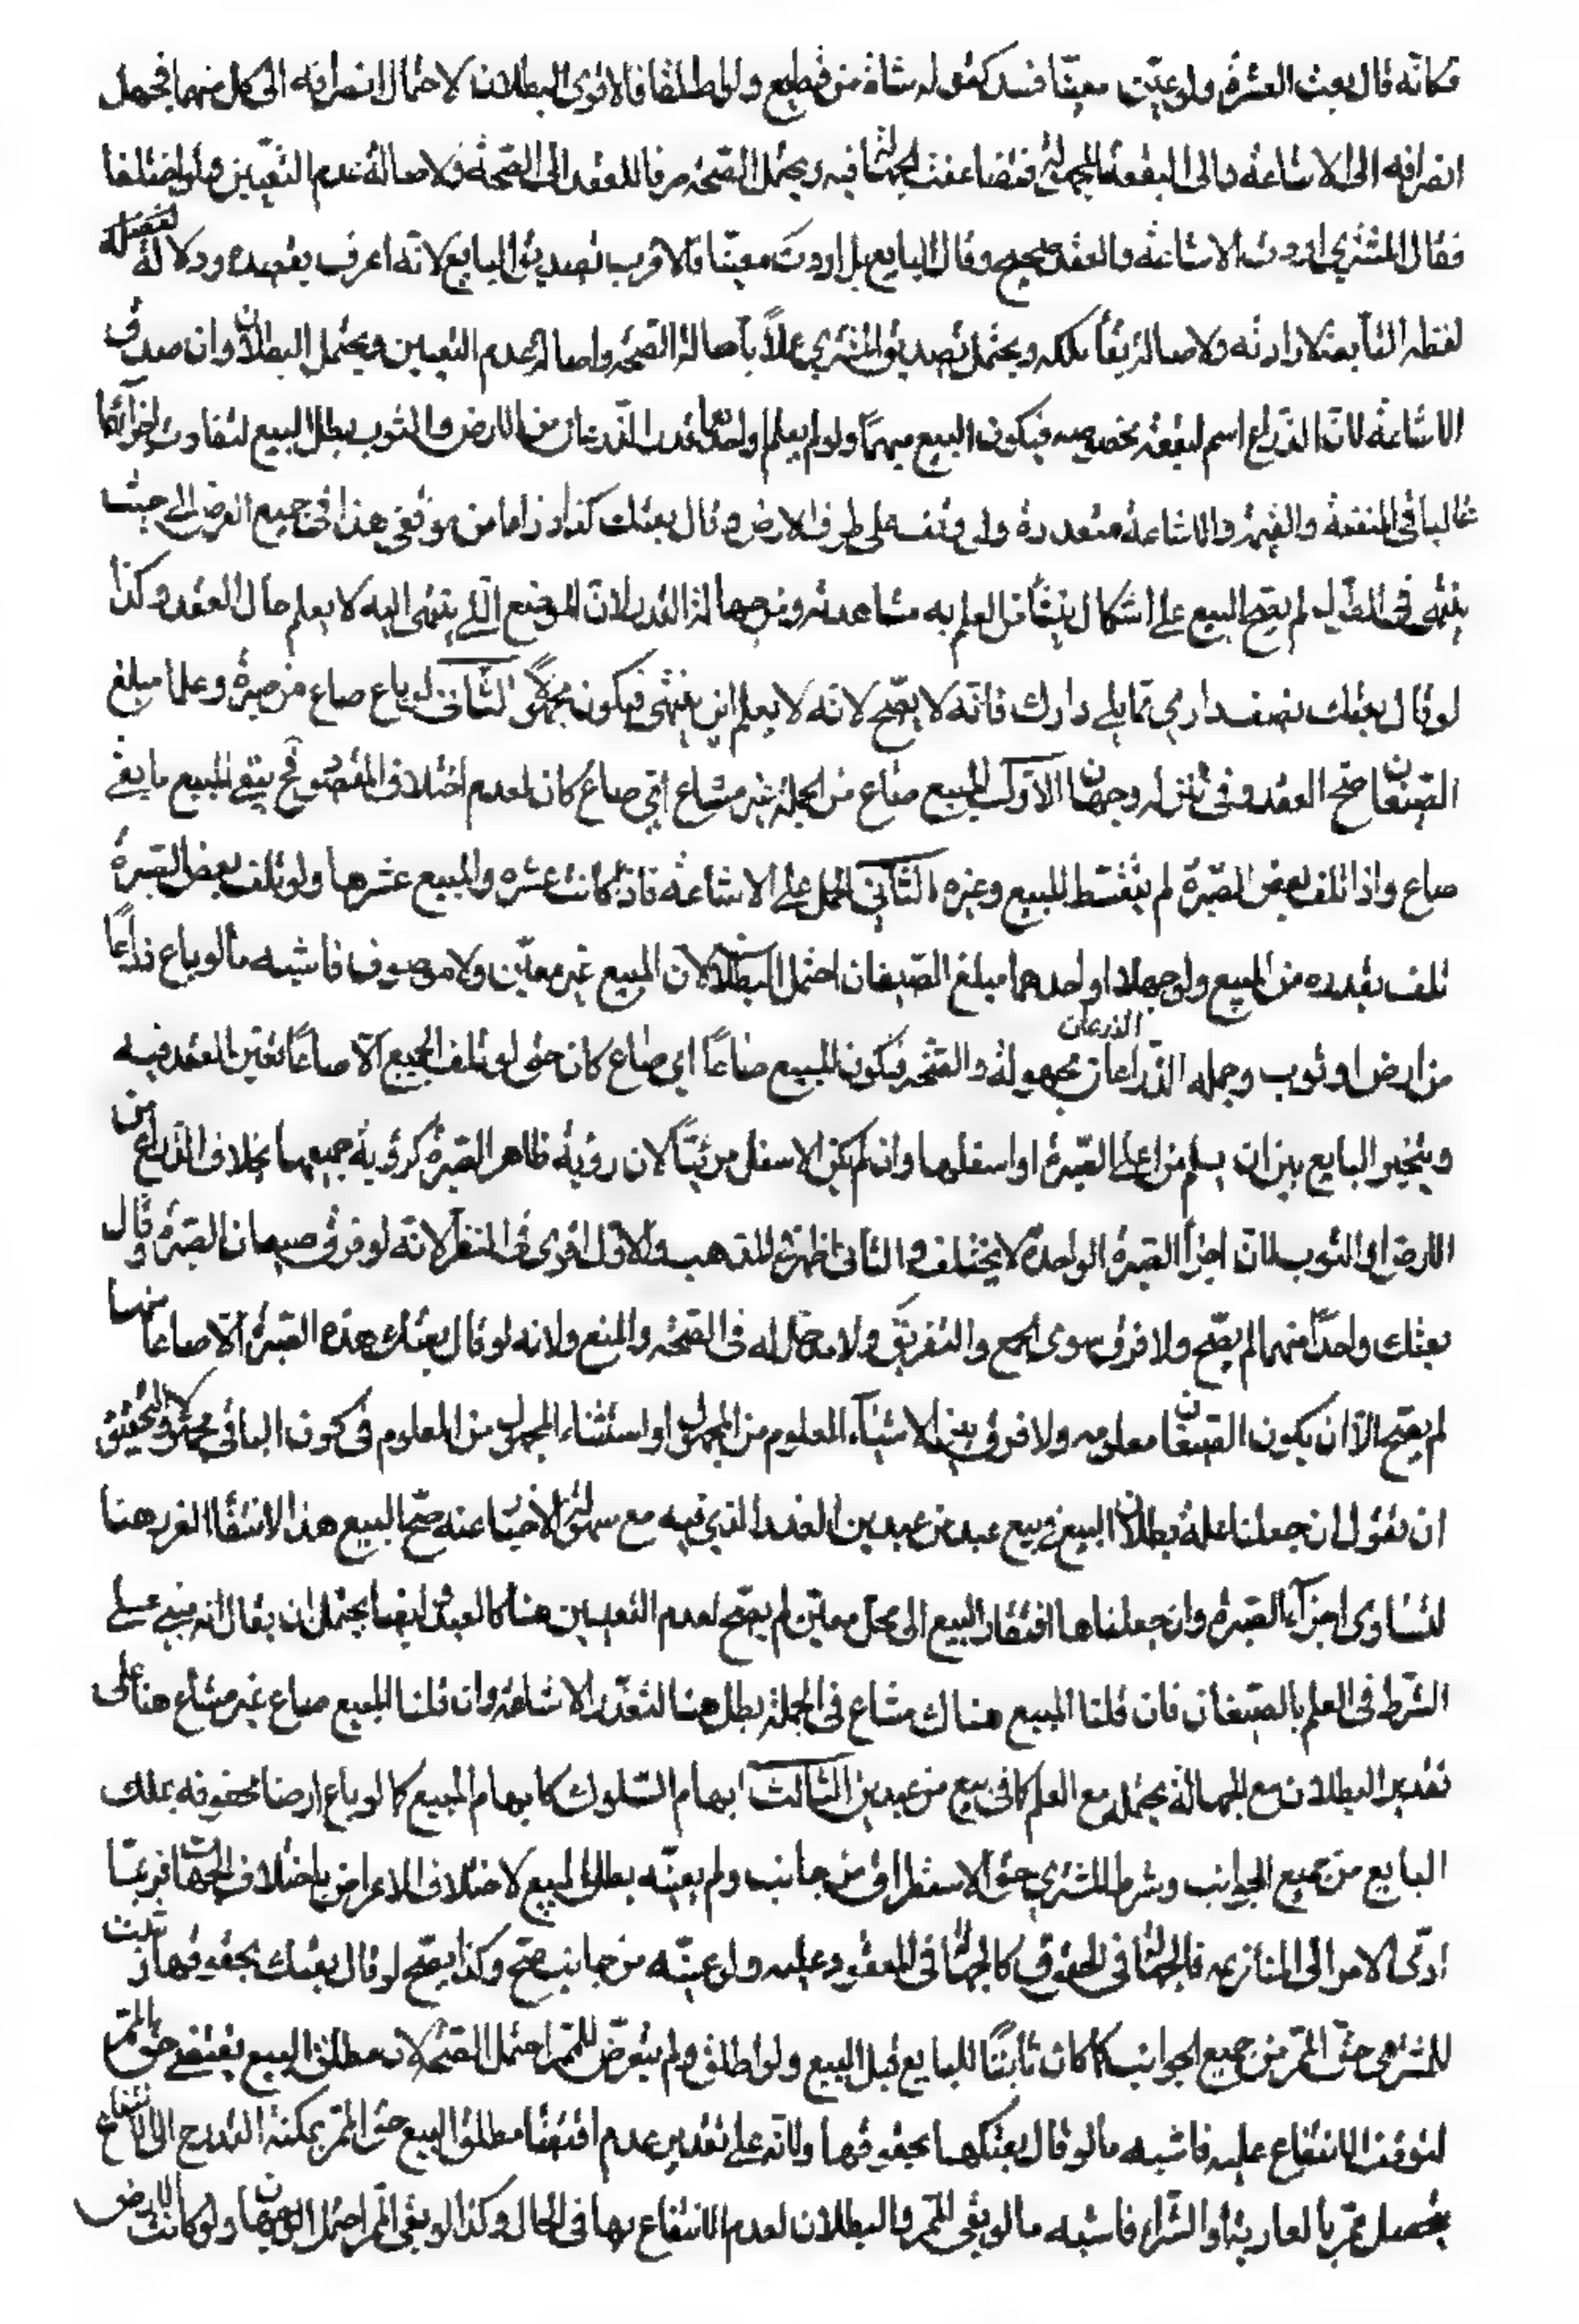 فكانّه قال بعت العشر ولو عيّن معيّنا فسد كقوله شاة من قطيع ولو اطلقا فالاقوى البطلان لاحتمال انصرافه الى كل منهما فيحتمل
انصرافه الى الاشاعة والى البقعة المجهولة فتضاعفت الجهالة فيه ويحتمل الصحّة صرفا للعقد الى الصّحة ولاصالة عدم التعيين ولو اختلفا
فقال المشتري اردت الاشاعة والعقد صحيح وقال البايع بل اردت معيّنا فالاقرب تصديق البايع لانّه اعرف بقصده ودلالة لفظه
لفظه التابعة لارادته ولاصالة بقاء ملكه ويحتمل تصديق المشتري عملاً باصالة الصّحة واصالة عدم التعيين ويحتمل البطلان وان صدق في
الاشاعة لانّ الذراع اسم لبقعة بخصوصه فيكون البيع مبهمًا ولو لم يعلم واحد منهما قدر الذرعان من الارض والثوب بطل البيع لتفاوت اجزائها
غالبا في المنفعة والقيمة والاشاعة متعددة ولو وقف على طرف الارض وقال بعتك كذا ذراعا من موقفي هذا في جميع العرض الى حيث
ينتهي في الطول لم يصح البيع على اشكال ينشأ من العلم به مشاهدة ومن جهالة القدر لانّ الموضع الذي ينتهي اليه لا يعلم حال العقد وكذا
لو قال بعتك نصف داري ممّا يلي دارك فانّه لا يصحّ لانّه لا يعلم اين ينتهي فيكون مجهولاً الثاني لو باع صاع من صبرة وعلما مبلغ
الصيعان صحّ العقد وفي تنزيله وجهان الاوّل المبيع صاع من الجملة غير مشاع ايّ صاع كان لعدم اختلاف المقصود فح يبقى المبيع ما بقي
صاع واذا تلف بعض الصبرة لم يتقسّط للمبيع وغيره الثاني الحمل على الاشاعة فاذا كانت عشرة والمبيع عشرها ولو تلف بعض الصبرة
تلف بقدره من المبيع ولو جهلا او احدهما مبلغ الصيعان احتمل البطلان لان المبيع غير معيّن ولا موصوف فاشبه ما لو باع ذراعًا
من ارض او ثوب وجملة الذّراعان الذرعان مجهولة والصحّة فيكون المبيع صاعًا اي صاع كان حتى لو تلف الجميع الّا صاعًا تعيّن العقد فيه
ويتخيّر البايع بين ان يسلم من اعلى الصبرة او اسفلها وان لم يكن الاسفل مرئيًا لان رؤية ظاهر الصبرة كرؤية جميعها بخلاف الذراع من
الارض او الثوب لان اجزا الصبرة الواحدة لا يختلف والثاني اظهر في المذهب والاوّل اقوى في النظر لانّه لو فرق صيعان الصبرة وقال
بعتك واحدًا منها لم يصحّ ولا فرق سوى الجمع والتفريق ولا مدخل له في الصّحة والمنع ولانه لو قال بعتك هذه الصبرة الّا صاعا منها
لم يصح الّا ان يكون الصيعان معلومه ولا فرق بين استثناء المعلوم من المجهول او استثناء المجهول من المعلوم في كون الباقي مجهولا والتحقيق
ان نقول ان جعلنا علة بطلان البيع في بيع عبد من عبدين الغرر الذي فيه مع سهولة الاجتناب عنه صحّ البيع هنا لانتفاء الغرر هنا
لتساوى اجزاء الصبرة وان جعلناها افتقار البيع الى محل معيّن لم يصح لعدم التعيين هنا كالعبدين ايضا يحتمل ان يقال انه مبني على
الشرط في العلم بالصيعان فان قلنا المبيع هناك مشاع في الجملة بطل هنا لتعذّر الاشاعة وان قلنا المبيع صاع غير مشاع هنا على
تقدير البطلان مع الجهالة يحتمل مع العلم كما في بيع من عبدين الثالث ابهام السّلوك كابهام المبيع كما لو باع ارضا محفوفة بملك
البايع من جميع الجوانب وشرط للمشتري حق الاستطراق من جانب ولم يعيّنه بطل البيع لاختلاف الاغراض باختلاف الجهات فربما
ادّى الامر الى المنازعة فالجهالة في الحقوق كالجهالة في المعقود عليه ولو عيّنه من جانب صح وكذا يصحّ لو قال بعتك بحقوقها وتثبت
للمشترى حق الممرّ من جميع الجوانب كما كان ثابتًا للبايع قبل البيع ولو اطلق ولم يتعرّض للممر احتمل الصحّة لان مطلق البيع يقتضي حق الممرّ
لتوقف الانتفاع عليه فاشبه ما لو قال بعتكها بحقوقها ولانّه على تقدير عدم اقتضاء مطلق البيع حق الممرّ يمكنه التدرج الى الانتفاع
بتحصيل ممرّ بالعارية او الشراء فاشبه ما لو نفى الممرّ والبطلان لعدم الانتفاع بها في الحال وكذا لو نفى الممر احتمل الوجهان ولو كانت الارض